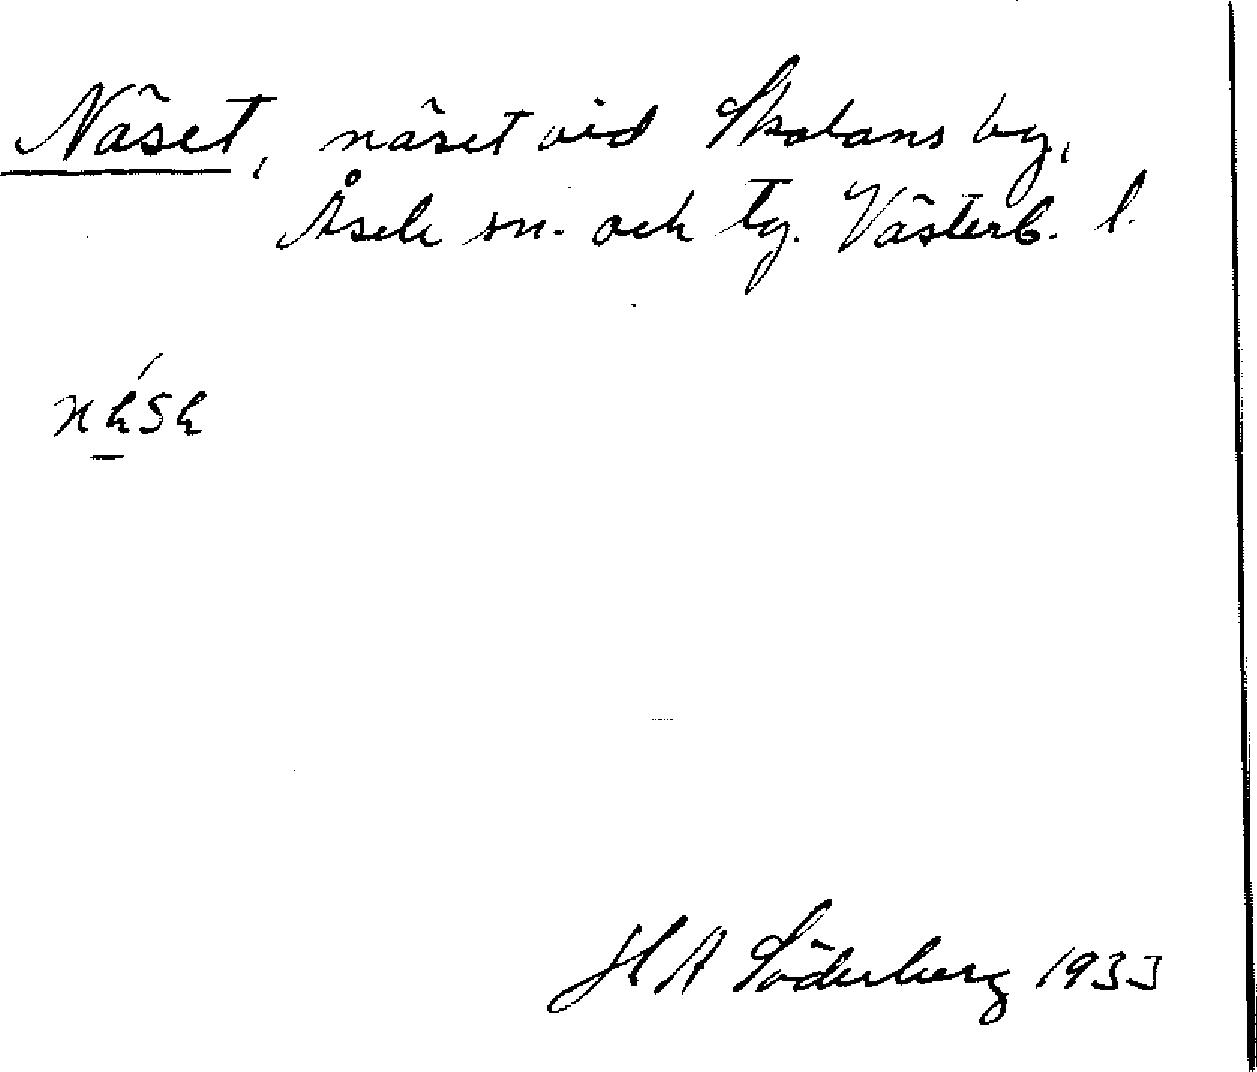 Näset, näset vid Skolans by,
Åsele sn. och tg. Västerb. l.
H A Söderberg 1933